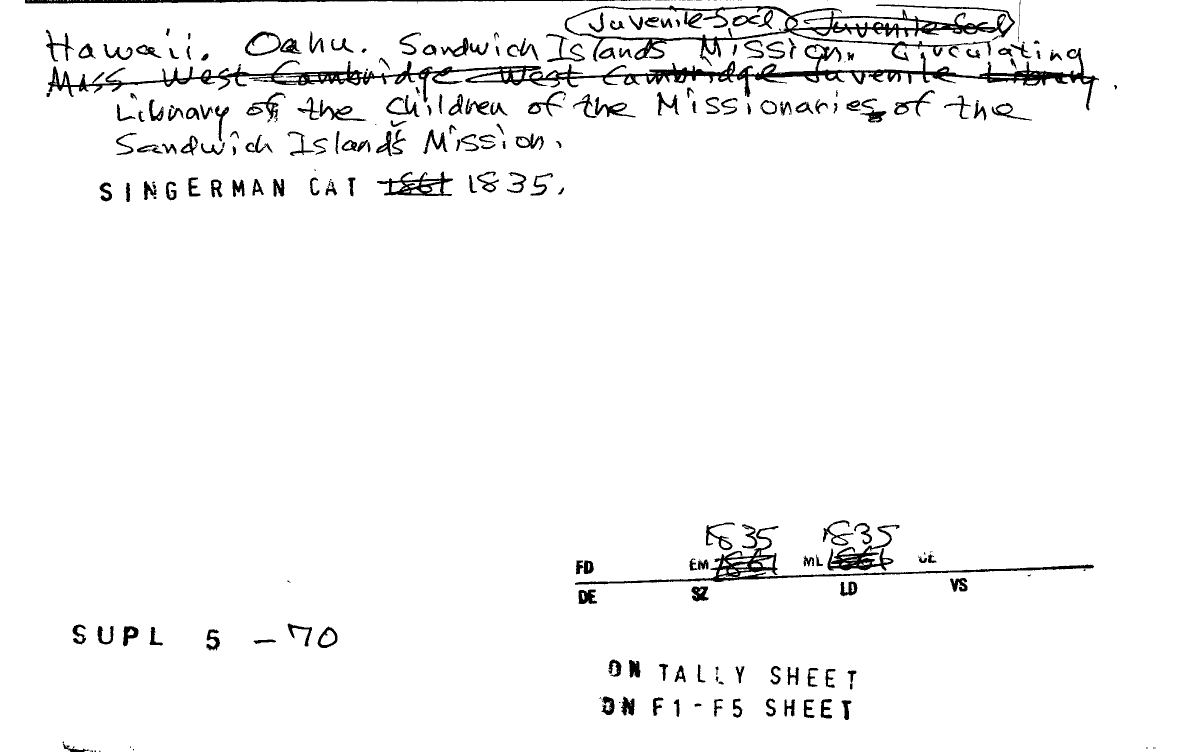 Juvenile-Socl. Juvenile-Socl
Hawaii. Oahu. Sandwich Islands Mission. Circulating
Mass West Cambridge West Cambridge Juvenile Library.
Library of the Children of the Missionaries of the
Sandwich Islands Mission.
SINGERMAN CAT 1861 1835.
1835 1835
FD EM 1861 ML 1861 CE
DE SZ LD VS
SUPL 5 - 70
ON TALLY SHEET
ON F1-F5 SHEET